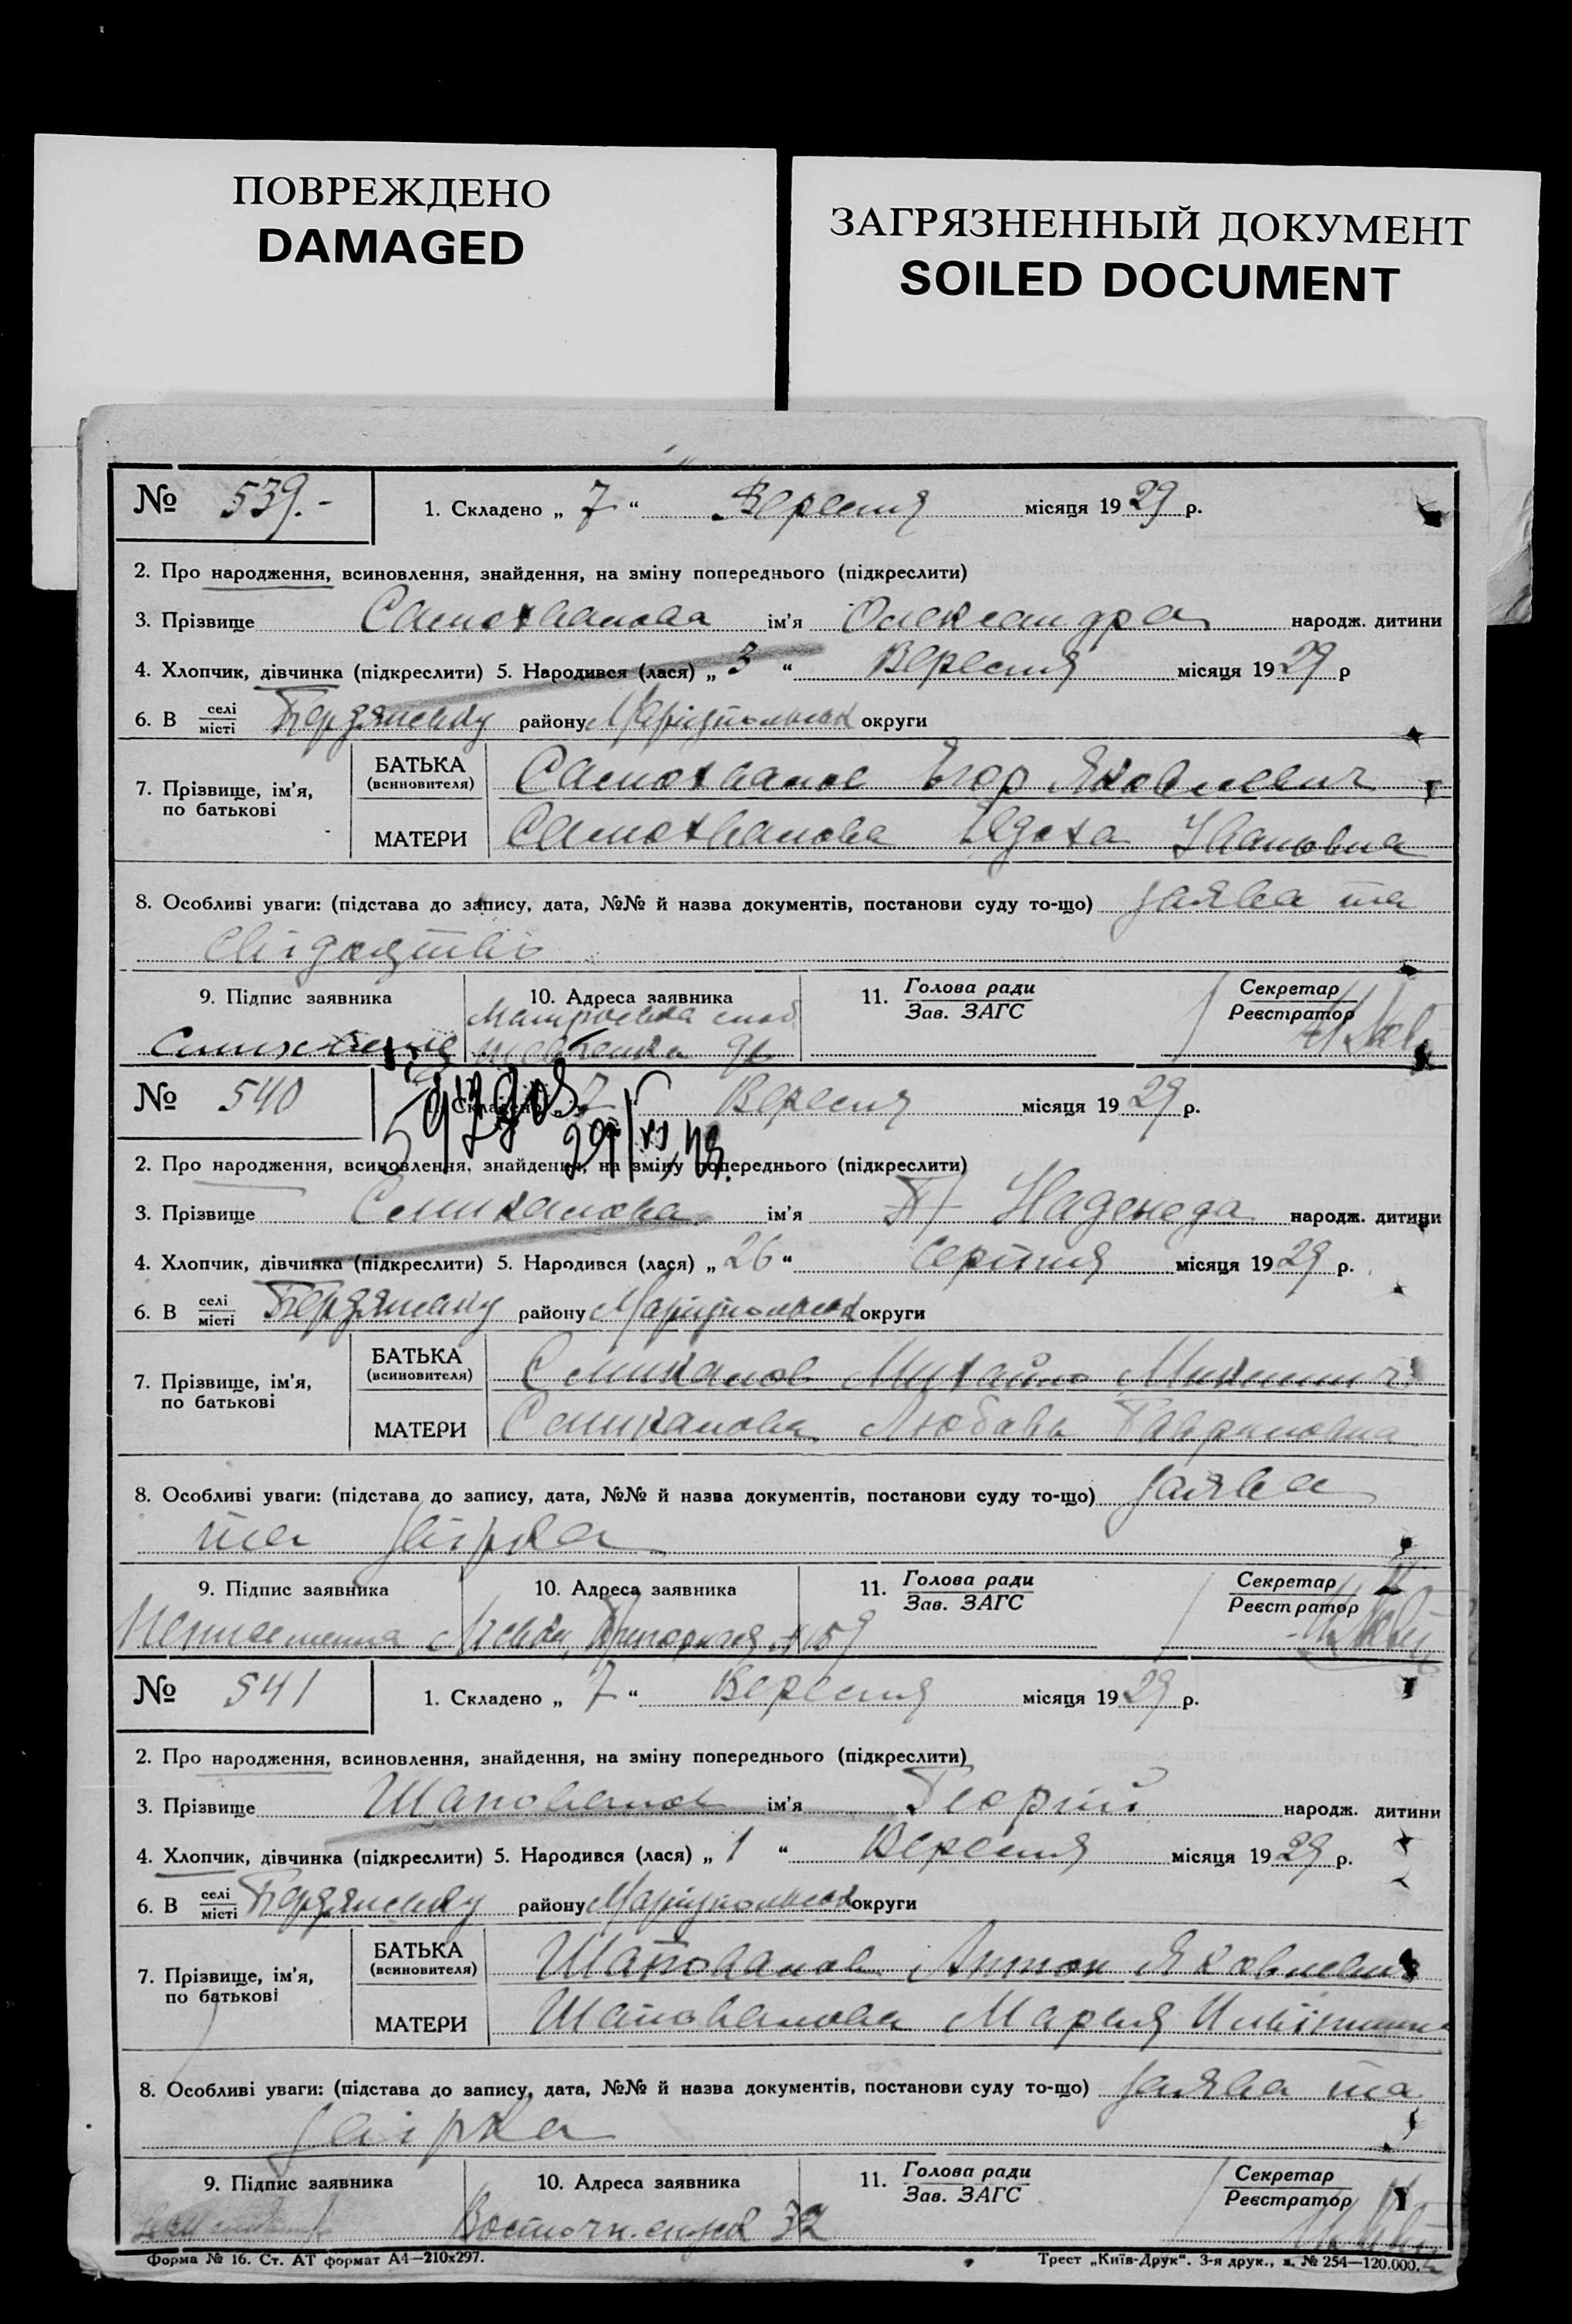 ПОВРЕЖДЕНО
DAMAGED
ЗАГРЯЗНЕННЫЙ ДОКУМЕНТ
SOILED DOCUMENT
№ 539.-
1. Складено „ 7 “ Вересня місяця 1929 р.
2. Про народження, всиновлення, знайдення, на зміну попереднього (підкреслити)
3. Прізвище Самохвалова ім'я Олександра народж. дитини
4. Хлопчик, дівчинка (підкреслити) 5. Народився (лася) „ 3 “ Вересня місяця 1929 р
6. В селі місті Бердянську району Маріупольськ округи
7. Прізвище, ім'я, по батькові
БАТЬКА (всиновителя) Самохвалов Ягор Яковлевич
МАТЕРИ Самохвалова Явдоха Івановна
8. Особливі уваги: (підстава до запису, дата, №№ й назва документів, постанови суду то-що) заява та
свідоцтво
9. Підпис заявника
10. Адреса заявника
11. Голова ради Зав. ЗАГС
Секретар Реєстратор
№ 540
1. Складено „ 7 “ Вересня місяця 1929 р.
2. Про народження, всиновлення, знайдення, на зміну попереднього (підкреслити)
3. Прізвище ім'я Надежда народж. дитини
4. Хлопчик, дівчинка (підкреслити) 5. Народився (лася) „ 26 “ серпня місяця 1929 р.
6. В селі місті Бердянську району Маріупольськ округи
7. Прізвище, ім'я, по батькові
БАТЬКА (всиновителя) Михайло
МАТЕРИ Любовь Гавриловна
8. Особливі уваги: (підстава до запису, дата, №№ й назва документів, постанови суду то-що) заява
та звірка
9. Підпис заявника
10. Адреса заявника
11. Голова ради Зав. ЗАГС
Секретар Реєстратор
№ 541
1. Складено „ 7 “ Вересня місяця 1929 р.
2. Про народження, всиновлення, знайдення, на зміну попереднього (підкреслити)
3. Прізвище Шаповалов ім'я Георгій народж. дитини
4. Хлопчик, дівчинка (підкреслити) 5. Народився (лася) „ 1 “ Вересня місяця 1929 р.
6. В селі місті Бердянську району Маріупольськ округи
7. Прізвище, ім'я, по батькові
БАТЬКА (всиновителя) Шаповалов Антон Яковлевич
МАТЕРИ Шаповалова Марья
8. Особливі уваги: (підстава до запису, дата, №№ й назва документів, постанови суду то-що) заява та
звірка
9. Підпис заявника
10. Адреса заявника
Восточн. 32
11. Голова ради Зав. ЗАГС
Секретар Реєстратор
Форма № 16. Ст. АТ формат А4—210х297.
Трест „Київ-Друк“. 3-я друк., з. № 254—120.000.